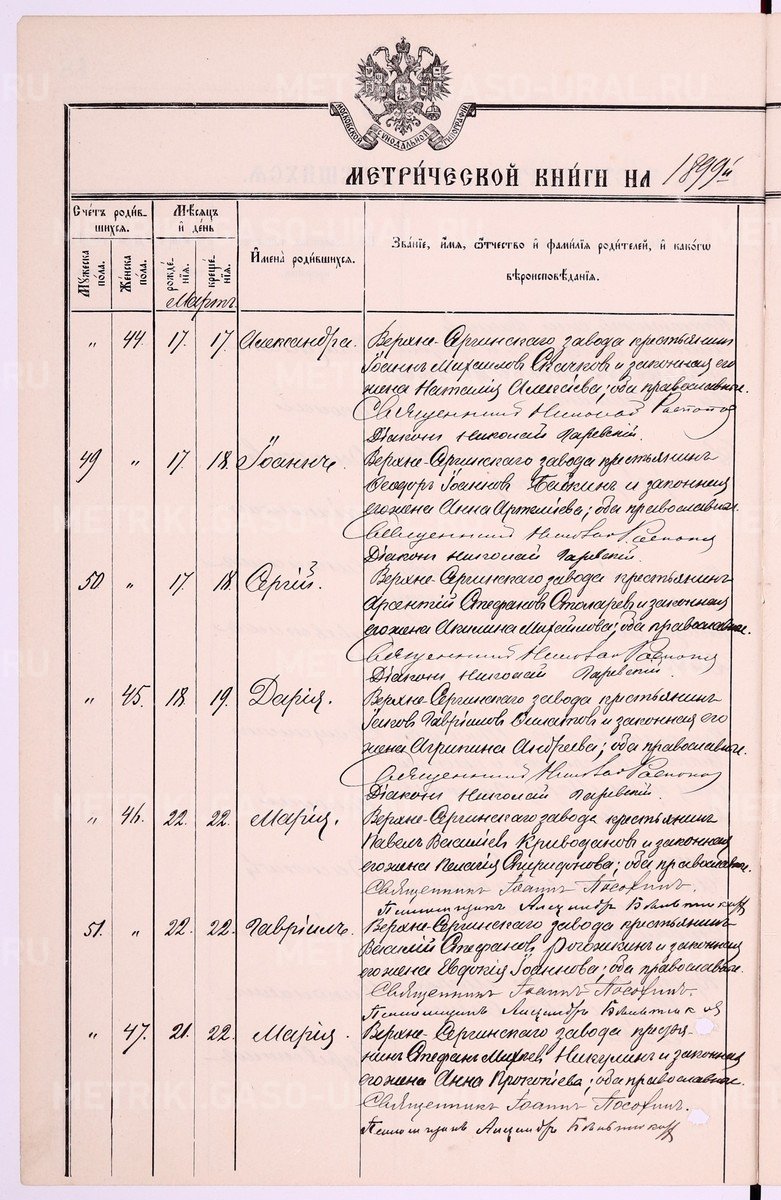 МОСКОВСКОЙ СѴНОДАЛЬНОЙ ТИПОГРАФІИ
МЕТРИ́ЧЕСКОЙ КНИ́ГИ НА 1899й
Сче́тъ роди́вшихся.
Мѣ́сяцъ и де́нь
И҆мена̀ роди́вшихся.
Зва́нїе, и҆́мѧ, ѻ҆́тчество и҆ фами́лїѧ роди́телей, и҆ како́гѡ вѣроисповѣ́данїѧ.
Мꙋ́жеска по́ла.
Же́нска по́ла.
рожде́нїѧ.
креще́нїѧ.
Мартъ
" 44. 17. 17. Александра. Верхне-Сергинскаго завода крестьянинъ
Іоаннъ Михаиловъ Скачковъ и законная его
жена Наталія Алексіева; оба православные.
Священникъ Николай Распоповъ
Діаконъ Николай
49 " 17. 18. Іоаннъ. Верхне-Сергинскаго завода крестьянинъ
Ѳеодоръ Іоанновъ и законная
его жена Анна Артеміева; оба православные.
Священникъ Николай Распоповъ
Діаконъ Николай
50 " 17. 18. Сергій. Верхне-Сергинскаго завода крестьянинъ
Арсентій Стефановъ Столяревъ и законная
его жена Акилина Михаилова; оба православные.
Священникъ Николай Распоповъ
Діаконъ Николай
" 45. 18. 19. Дарія. Верхне-Сергинскаго завода крестьянинъ
Іаковъ Гавріиловъ и законная его
жена Агрипина Андреева; оба православные.
Священникъ Николай Распоповъ
Діаконъ Николай
" 46. 22. 22. Марія. Верхне-Сергинскаго завода крестьянинъ
Павелъ Василіевъ и законная
его жена Пелагія Спиридонова; оба православные.
Священникъ Іоаннъ
Псаломщикъ Александръ
51. " 22. 22. Гавріилъ. Верхне-Сергинскаго завода крестьянинъ
Василій Стефановъ Рогожкинъ и законная
его жена Евдокія Іоаннова; оба православные.
Священникъ Іоаннъ
Псаломщикъ Александръ
" 47. 21. 22. Марія. Верхне-Сергинскаго завода крестья-
нинъ Стефанъ Никулинъ и законная
его жена Анна Прокопіева; оба православные.
Священникъ Іоаннъ
Псаломщикъ Александръ